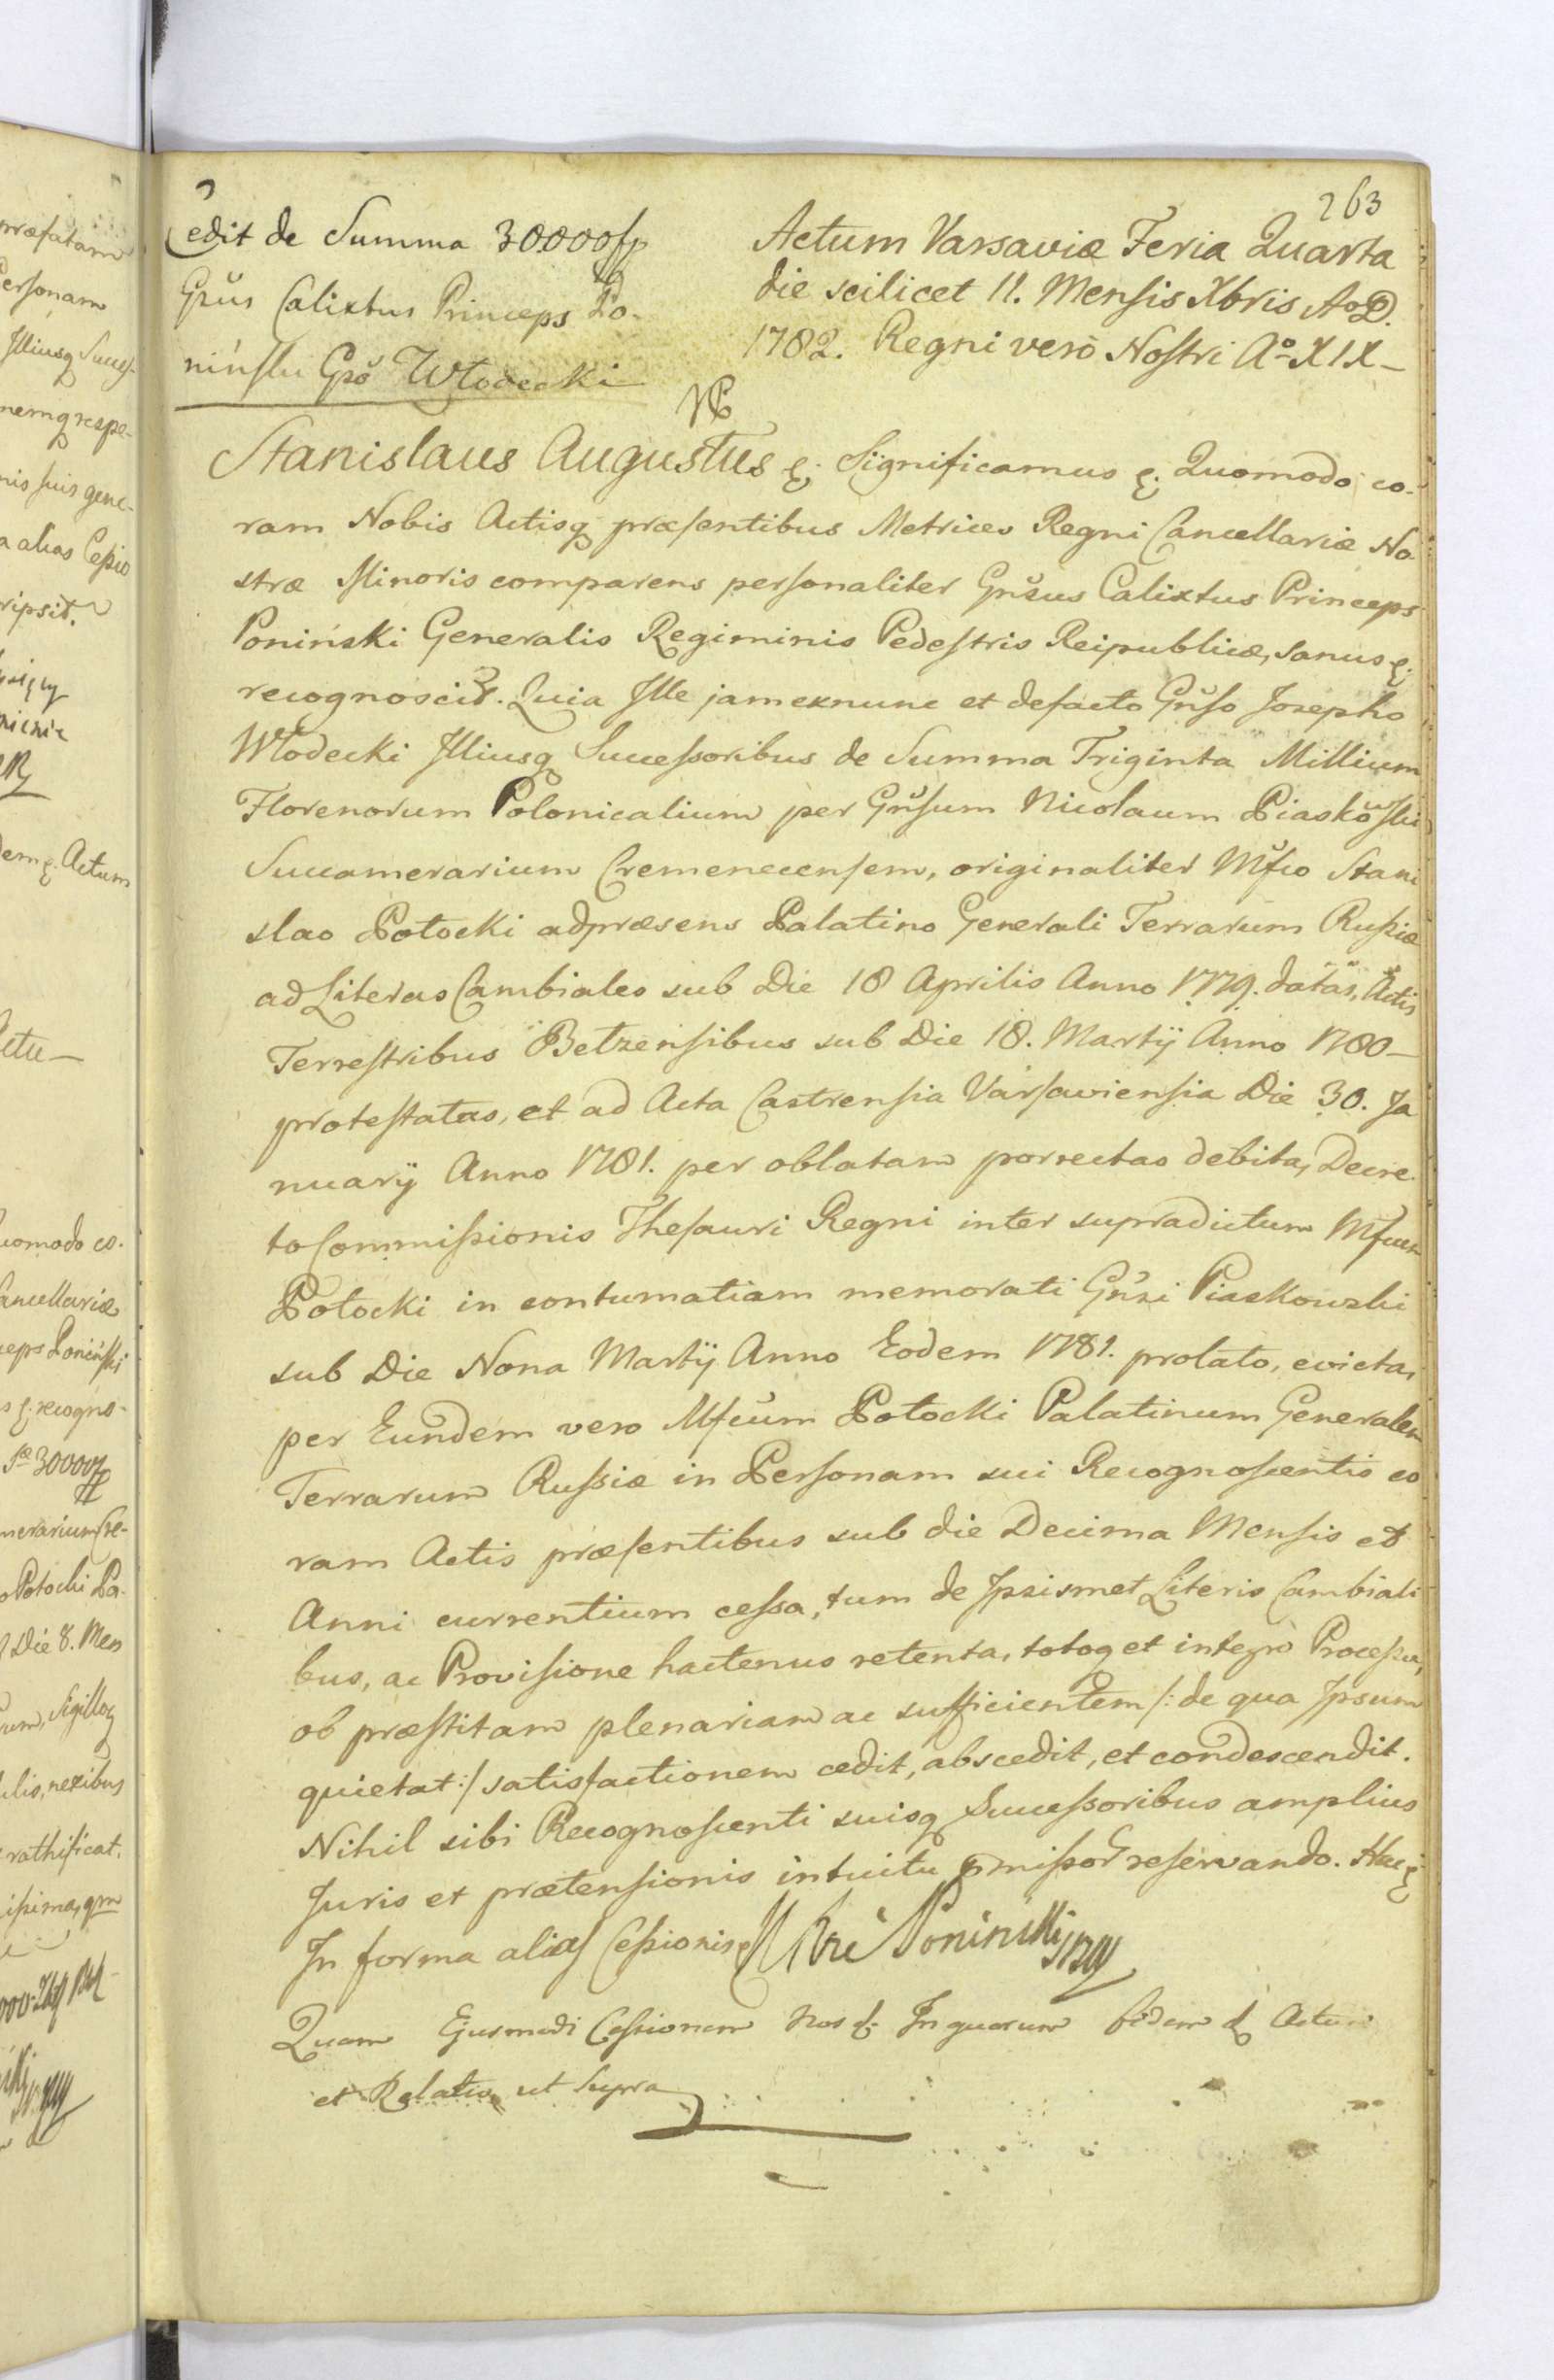 263
Cedit de Summa 30000fp
Gñus Calixtus Princeps Po-
niński Gño Włodecki
Actum Varsaviæ Feria Quarta
die scilicet 11. Mensis Xbris AoD.
1782. Regni verò Nostri Ao XIX
Stanislaus Augustus &. Significamus &. Quomodo co-
ram Nobis Actisq præsentibus Metrices Regni Cancellariæ No-
stræ Minoris comparens personaliter Gñsus Calixtus Princeps
Poniński Generalis Regiminis Pedestris Reipublicæ, sanus &.
recognoscit. Quia Ille jam exnunc et defacto Gñso Josepho
Włodecki Illiusq Successoribus de Summa Triginta Millium
Florenorum Polonicalium per Gñsum Nicolaum Piaskowski
Succamerarium Cremenecensem, originaliter Mfco Stani
slao Potocki adpræsens Palatino Generali Terrarum Russiæ
ad Literas Cambiales sub Die 18 Aprilis Anno 1779. datas, Actis
Terrestribus Betzensibus sub Die 18. Martij Anno 1780
protestatas, et ad Acta Castrensia Varsaviensia Die 30. Ja
nuarij Anno 1781. per oblatam porrectas debita, Decre
to Commissionis Thesauri Regni inter supradictum Mfcum
Potocki in contumatiam memorati Gñsi Piaskowski
sub Die Nona Martij Anno Eodem 1781. prolato, evicta,
per Eundem vero Mfcum Potocki Palatinum Generalem
Terrarum Russiæ in Personam sui Recognoscentis co
ram Actis præsentibus sub die Decima Mensis et
Anni currentium cessa, tum de Ipsismet Literis Cambiali
bus, ac Provisione hactenus retenta, totoq et integro Processu,
ob præstitam plenariam ac sufficientem /: de qua Ipsum
quietat :/ satisfactionem cedit, abscedit, et condescendit.
Nihil sibi Recognoscenti suisq Successoribus amplius
Juris et prætensionis intuitu pmissor reservando. Hac &
In forma alias Cessionis &
Poniński
Quam Ejusmodi Cessionem Nos &. In quorum fidem & Actum
et Relatio ut supra